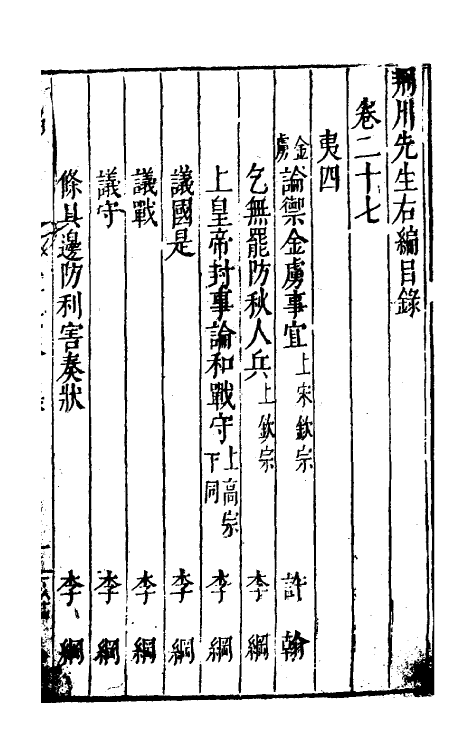 荆川先生右編目錄
卷二十七
夷四
金虜 論禦金虜事宜 上宋欽宗 許翰
乞無罷防秋人兵 上欽宗 李綱
上皇帝封事論和戰守 上高宗下同 李綱
議國是 李綱
議戰 李綱
議守 李綱
條具邊防利害奏狀 李綱